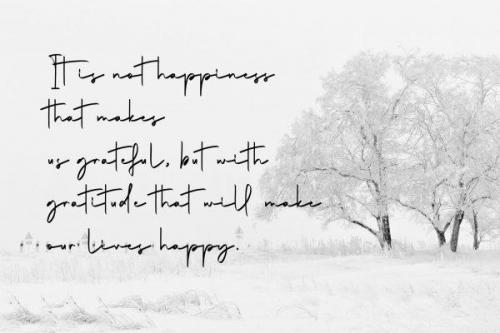 It is not happiness
that makes
us grateful, but with
gratitude that will make
our lives happy.